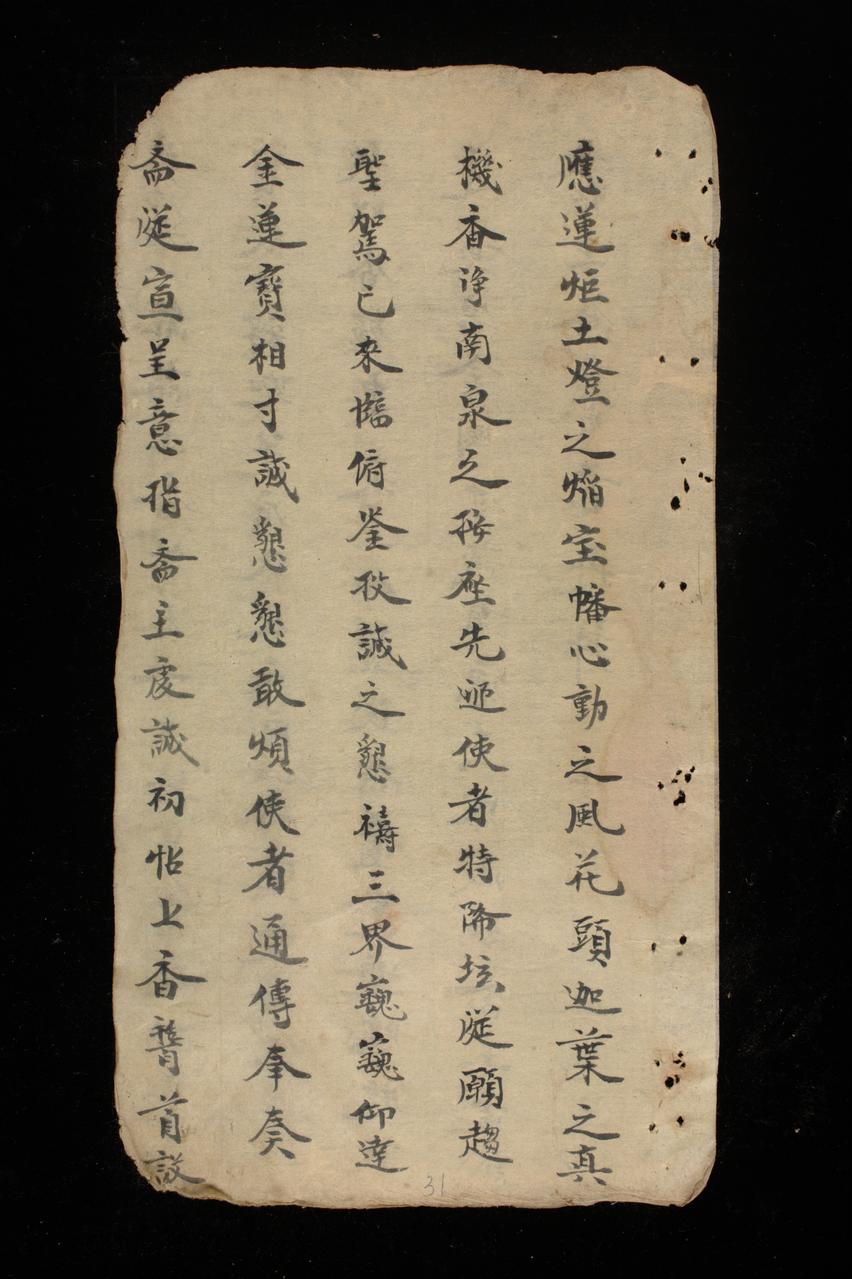 應蓮炬土燈之焔宝幡心動之風花頭迦葉之真
機香浄南泉之按座先迎使者特降坛延願趨
聖駕已來臨俯鉴投誠之懇禱三界巍巍仰達
金蓮寶相寸誠懇懇敢煩使者通傳奉奏
斋延宣呈意指斋主虔誠初帖上香稽首設
31